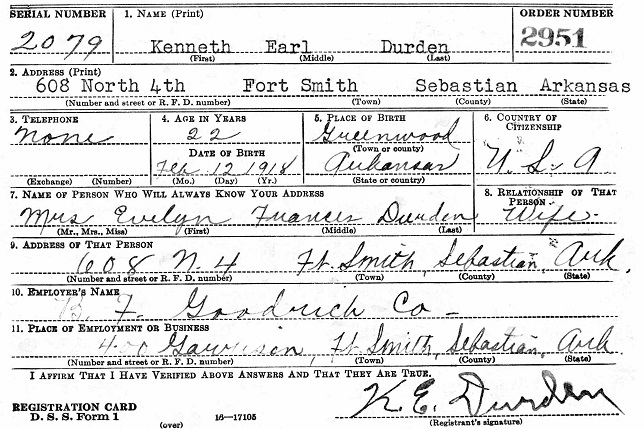 SERIAL NUMBER 1. NAME (Print) ORDER NUMBER
2079 Kenneth Earl Durden 2951
(First) (Middle) (Last)
2. ADDRESS (Print)
608 North 4th Fort Smith Sebastian Arkansas
(Number and street or R. F. D. number) (Town) (County) (State)
3. TELEPHONE 4. AGE IN YEARS 5. PLACE OF BIRTH 6. COUNTRY OF CITIZENSHIP
None 22 Greenwood
(Town or county)
DATE OF BIRTH
Feb 12 1918 Arkansas U. S. A
(Exchange) (Number) (Mo.) (Day) (Yr.) (State or country)
7. NAME OF PERSON WHO WILL ALWAYS KNOW YOUR ADDRESS 8. RELATIONSHIP OF THAT PERSON
Mrs Evelyn Frances Durden Wife
(Mr., Mrs., Miss) (First) (Middle) (Last)
9. ADDRESS OF THAT PERSON
608 N. 4 Ft. Smith, Sebastian, Ark.
(Number and street or R. F. D. number) (Town) (County) (State)
10. EMPLOYER'S NAME
B. F. Goodrich Co
11. PLACE OF EMPLOYMENT OR BUSINESS
400 Garrison, Ft Smith, Sebastian, Ark.
(Number and street or R. F. D. number) (Town) (County) (State)
I AFFIRM THAT I HAVE VERIFIED ABOVE ANSWERS AND THAT THEY ARE TRUE.
K. E. Durden
REGISTRATION CARD
D. S. S. Form 1 (over) 16—17105 (Registrant's signature)